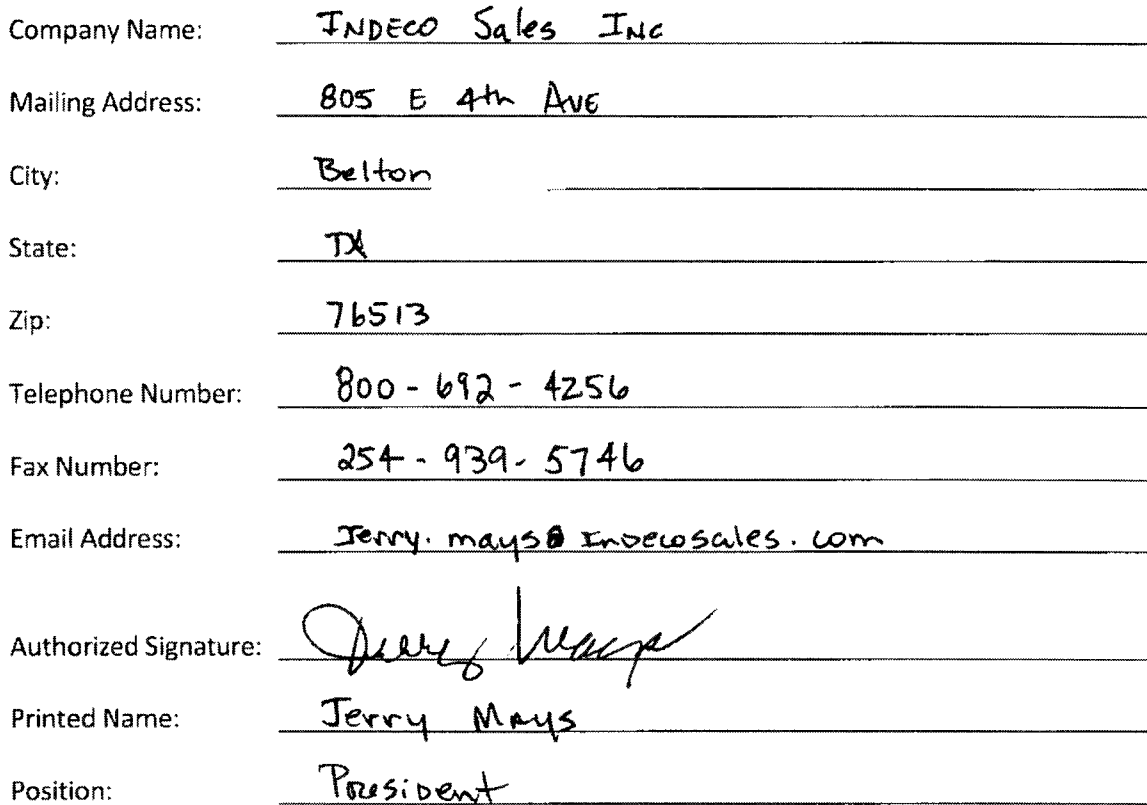 Company Name: INDECO Sales INC
Mailing Address: 805 E 4th AVE
City: Belton
State: TX
Zip: 76513
Telephone Number: 800-692-4256
Fax Number: 254-939-5746
Email Address: Jerry.mays@indecosales.com
Authorized Signature: Jerry Mays
Printed Name: Jerry Mays
Position: President